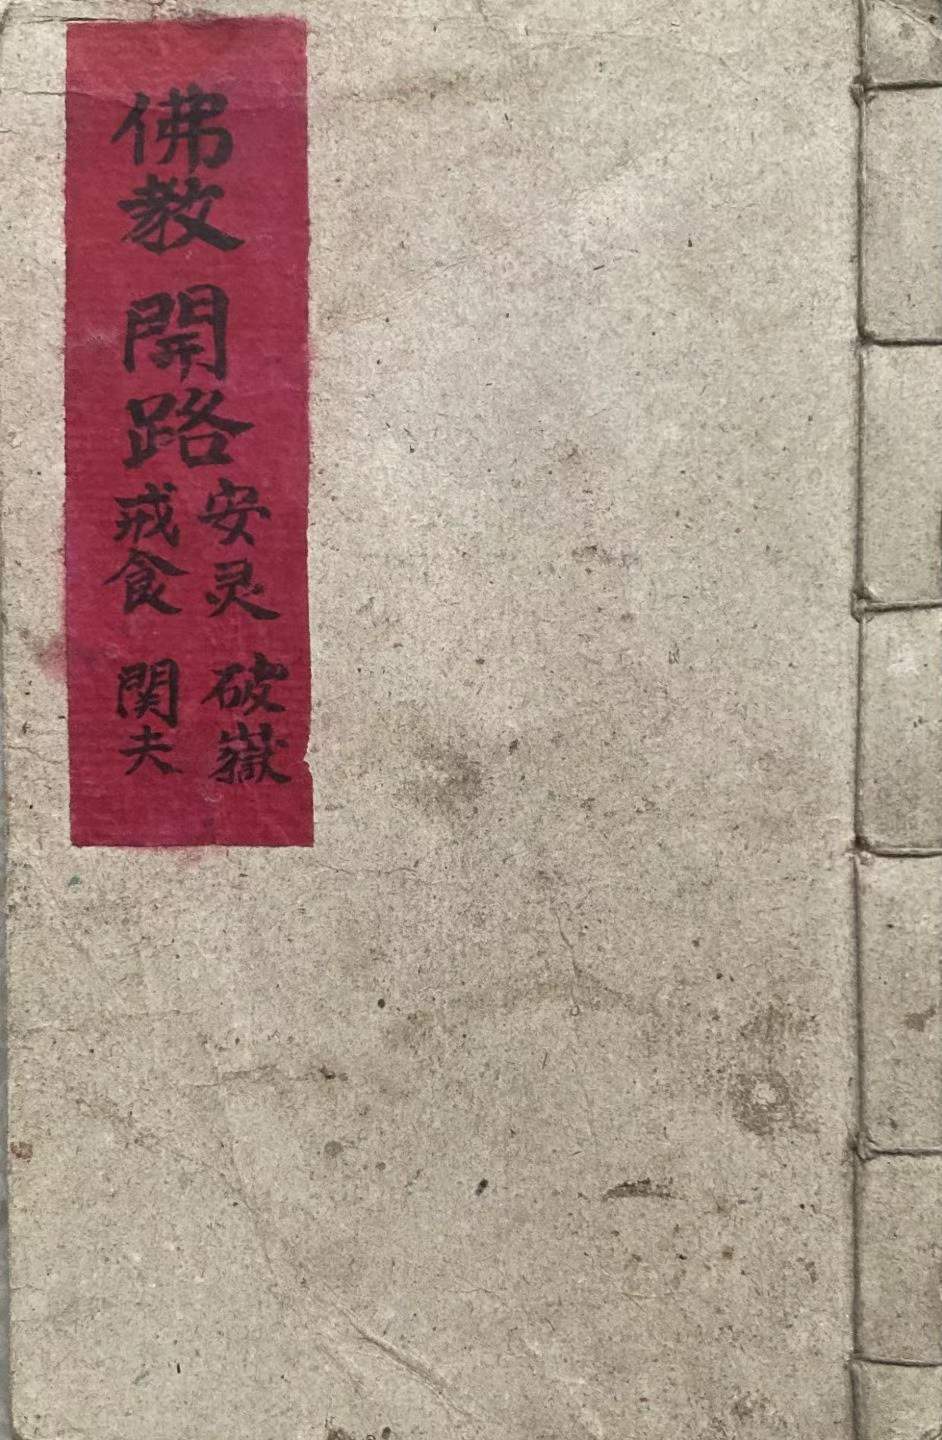 佛教 開路
安灵 破嶽
戒食 関夫